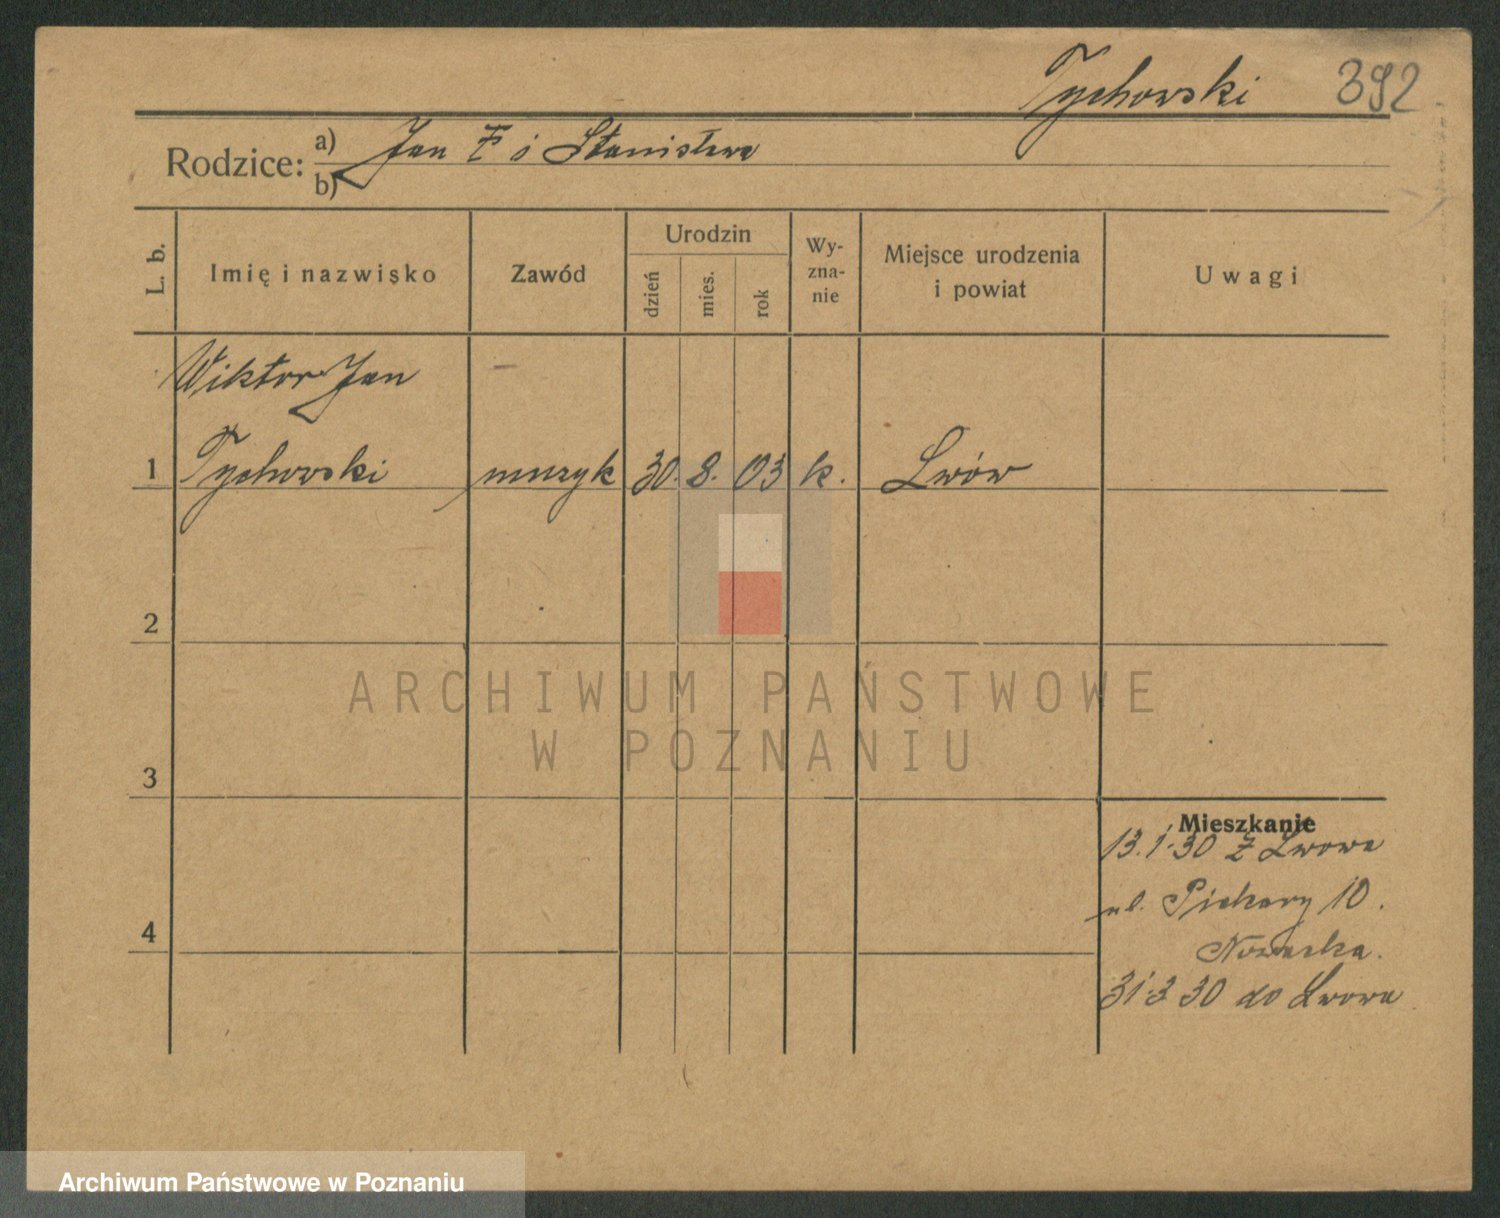 Tychowski 392
Rodzice: a) Jan F i Stanisława
b)
L. b. Imię i nazwisko Zawód Urodzin dzień mies. rok Wy-zna-nie Miejsce urodzenia i powiat Uwagi
Wiktor Jan
1 Tychowski muzyk 30. 8. 03 k. Lwów
2
ARCHIWUM PAŃSTWOWE
W POZNANIU
3
Mieszkanie
13.1.30 z Lwowa
ul. Piekary 10.
4
Nowacka.
31.3 30 do Lwowa
Archiwum Państwowe w Poznaniu